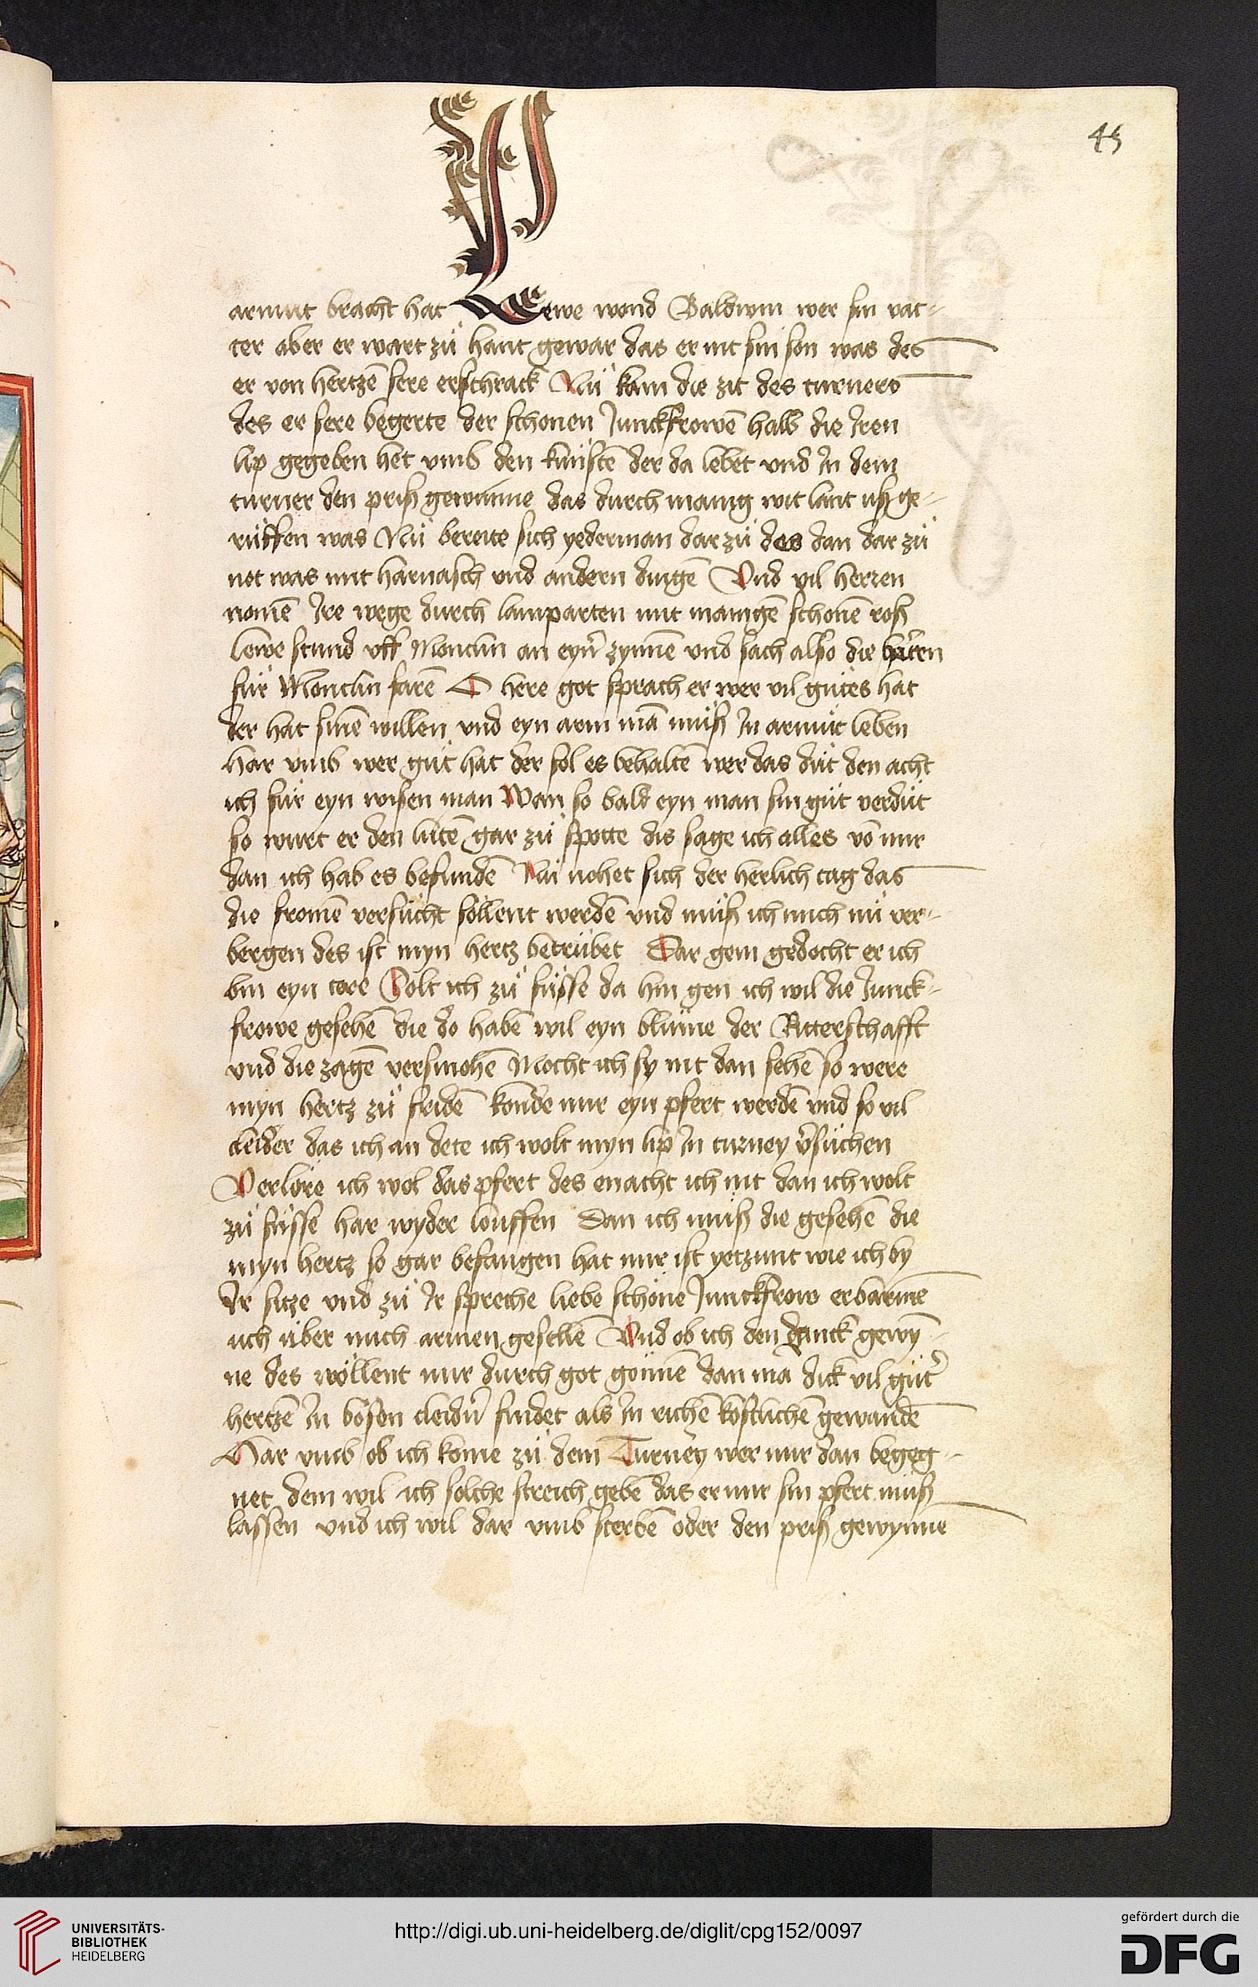 45
armut bracht hat Lewe wond Baldwin wer sin vat-
ter aber er wart zu hant gewar das er nit sin son was des
er von hertzē sere erschrack Nü kam die zit des turners
des er sere begerte der schonen Junckfrowē halb die Jren
lip gegeben het vmb den künstē der da lebet vnd Jn dem
turner den priß gewinne das durch manig wit lant uß ge-
rüffen was Nü bereite sich yederman dar zü des dan dar zü
not was mit harnasch vnd andern dingē Vnd vil herren
nomē Jre wege durch lamparten mit mangē schonē roß
lewe stund vff Monclin an eynr zynnē vnd sach also die herren
für Monclin farē O here got sprach er wer vil gütes hat
der hat sinē willen vnd eyn arm mā müß Jn armüt leben
Har vmb wer güt hat der sol es behaltē wer das düt den acht
ich für eyn wisen man Wan so bald eyn man sin güt verdüt
so wirt er den lütē gar zü spotte dis sage ich alles vō mir
dan ich hab es befundē Nü nohet sich der herlich tag das
die fromē versücht sollent werdē vnd müß ich mich nü ver-
bergen des ist myn hertz betrübet Dar gein gedocht er ich
bin eyn tore Solt ich zü füsse da hin gen ich wil die Junck-
frowe gesehē die do habē wil eyn blüme der Ritterschafft
vnd die zagē versmohē Mocht ich sy nit dan sehē so were
myn hertz zü fridē konde mir eyn pfert werdē vnd so vil
cleider das ich an dete ich wolt myn lip Jn turney v̉süchen
Verlöre ich wol das pfert des enacht ich nit dan ich wolt
zü füsse har wyder louffen Dan ich müß die gesehē die
myn hertz so gar befangen hat mir ist yetzunt wie ich by
Jr sitze vnd zü Jr spreche liebe schöne Junckfrow erbarme
uch über mich armen gesellē Vnd ob ich den danck gewÿ-
ne des wöllent mir durch got gönnē dan ma dick vil güt̉
hertzē Jn bösen cleidn̉ findet als Jn richē köstlichē gewandē
Har vmb ob ich kome zü dem Turney wer mir dan begeg-
net dem wil ich solche streich gebē das er mir sin pfert müß
lassen vnd ich wil dar vmb sterbē oder den priß gewynne
UNIVERSITÄTS-
BIBLIOTHEK
HEIDELBERG
http://digi.ub.uni-heidelberg.de/diglit/cpg152/0097
gefördert durch die
DFG